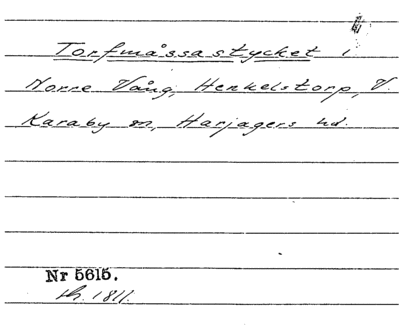 Torfmåssastycket i
Norre Vång, Henkelstorp, V.
Karaby sn, Harjagers hd.
Nr 5615.
1811.